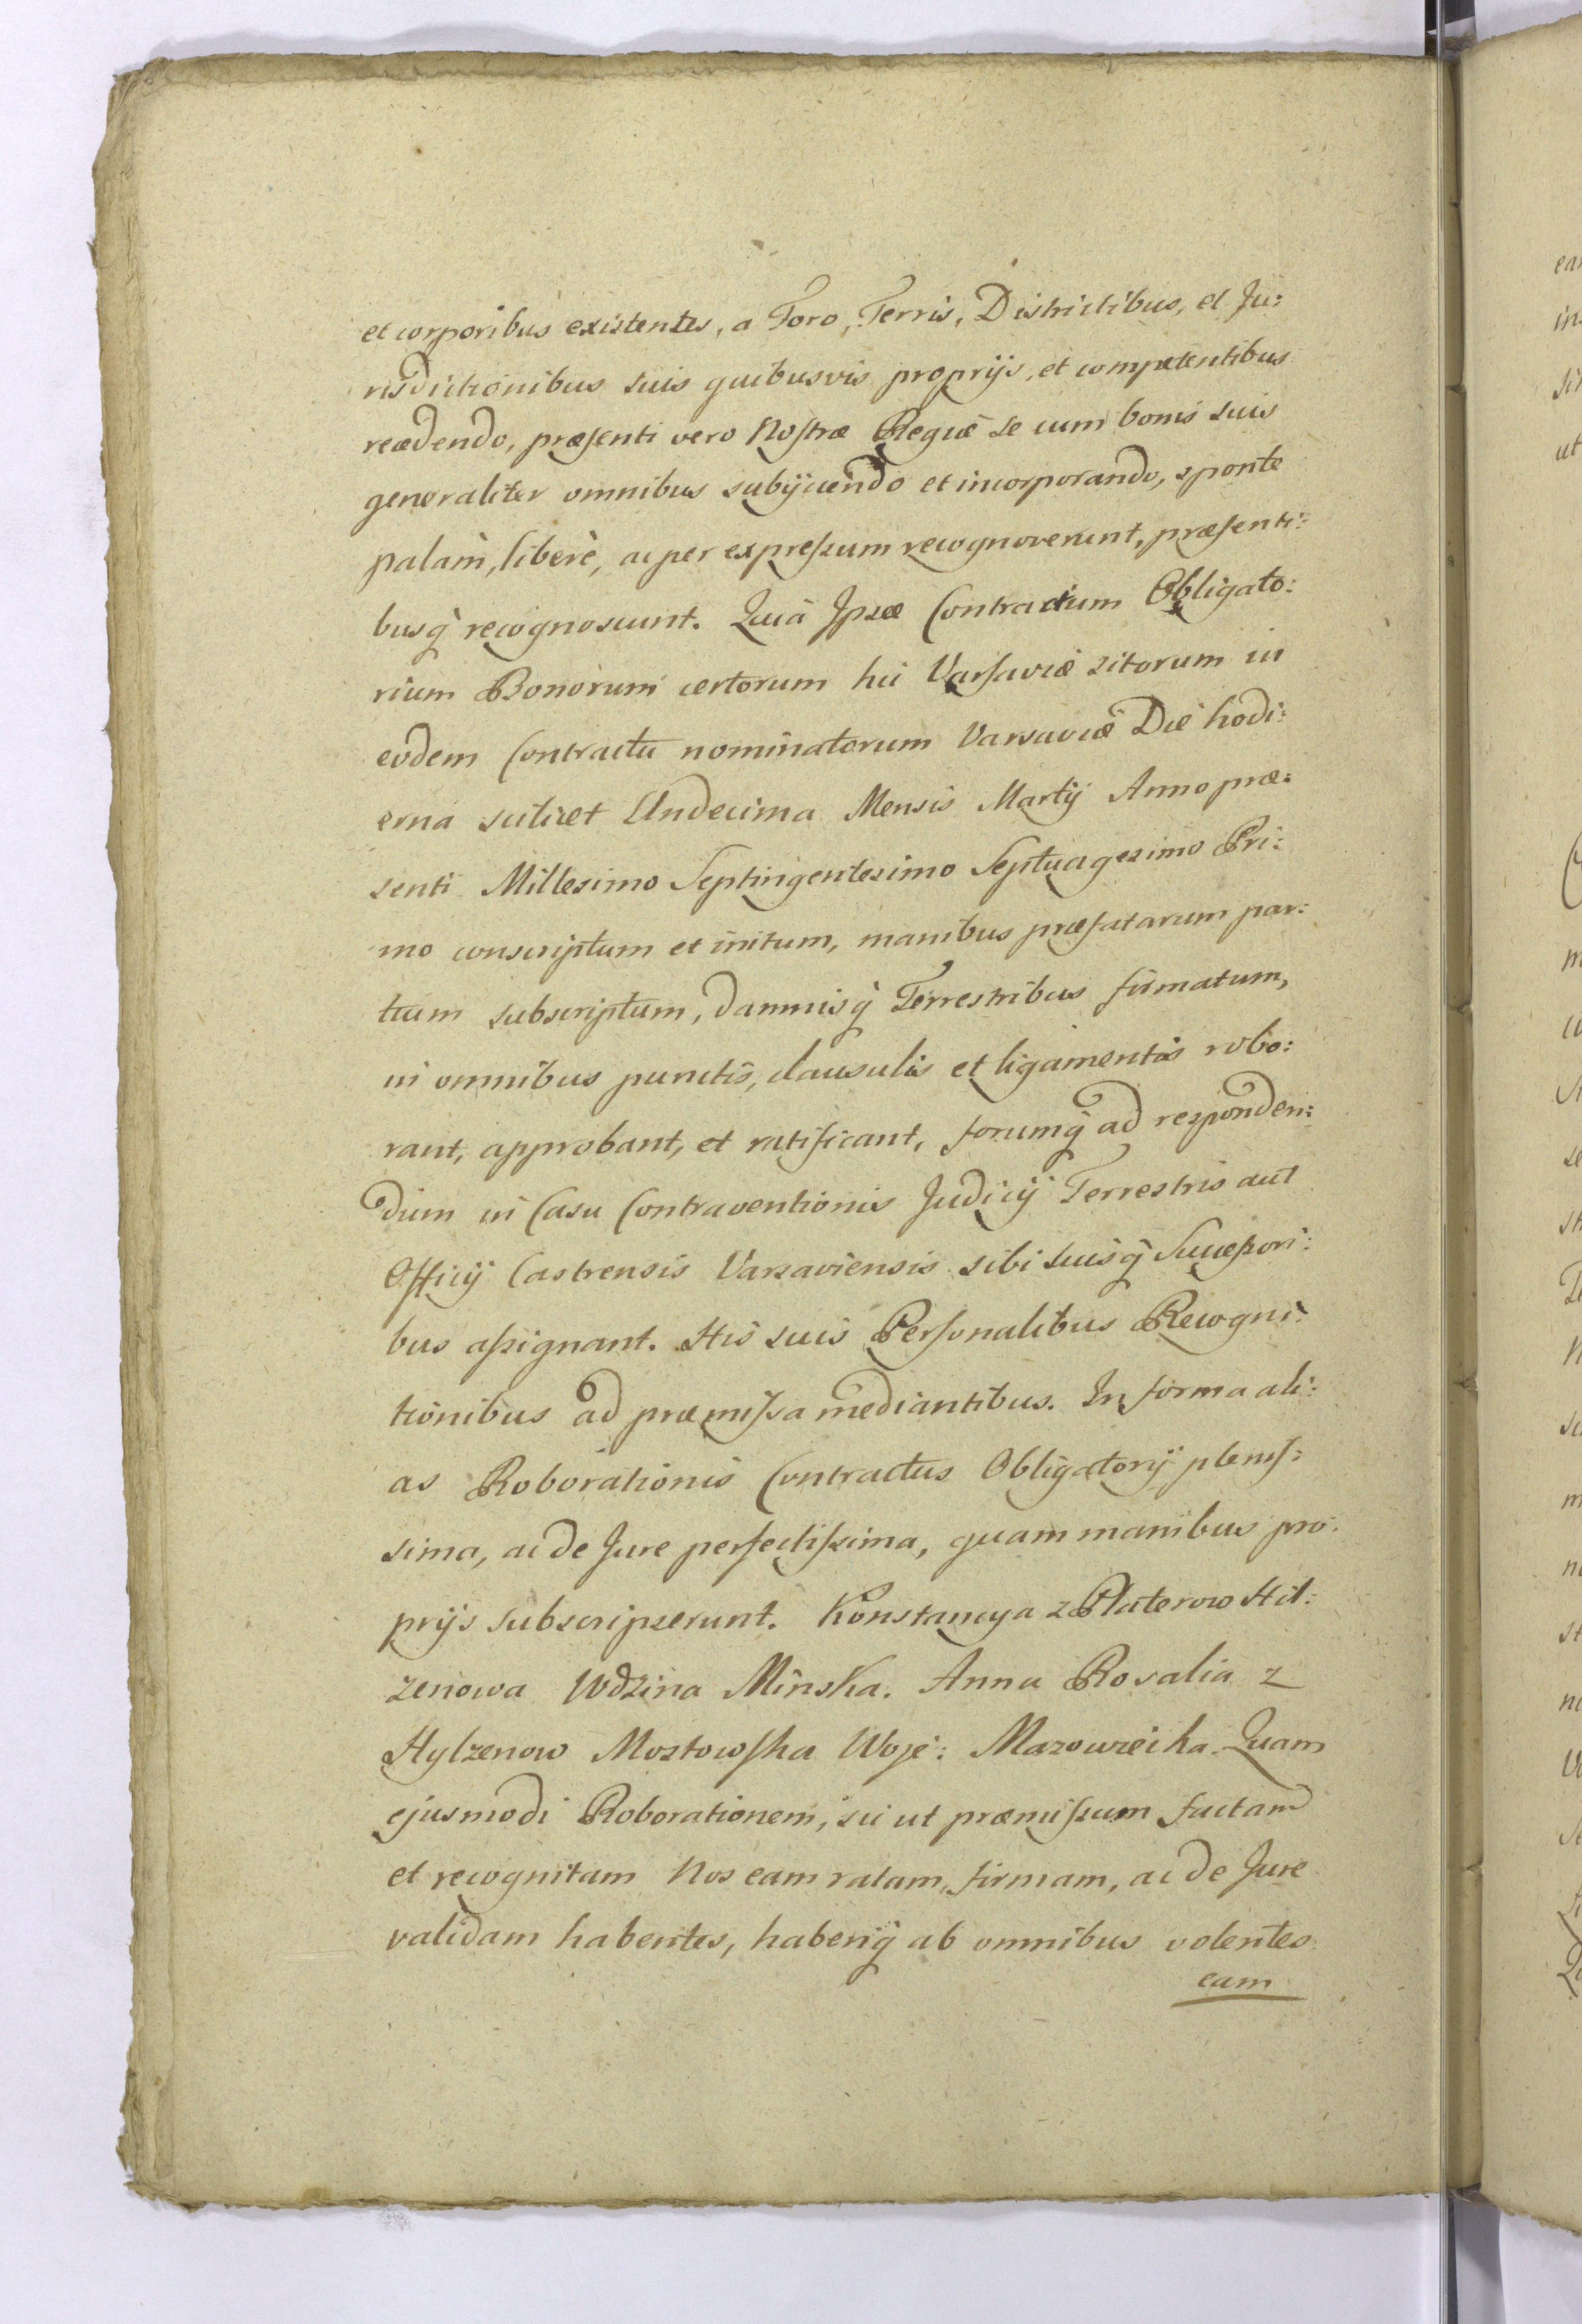 et corporibus existentes, a Foro, Terris, Districtibus, et Ju:
risdictionibus suis quibusvis proprijs, et competentibus
recedendo, præsenti vero Nostræ Regiæ se cum bonis suis
generaliter omnibus subijciendo et incorporando, sponte
palàm, liberè, ac per expressum recognoverunt, præsenti:
busq́ recognoscunt. Quià Ipsæ Contractum Obligato:
rium Bonorum certorum hic Varsaviæ sitorum in
eodem Contractu nominatorum Varsaviæ Die hodi:
erna scilicet Undecima Mensis Martij Anno præ:
senti Millesimo Septingentesimo Septuagesimo Pri:
mo conscriptum et initum, manibus præfatarum par:
tium subscriptum, damnisq́ Terrestribus firmatum,
in omnibus punctis, clausulis et ligamentis robo:
rant, approbant, et ratificant, forumq́ ad responden:
dum in Casu Contraventionis Judicij Terrestris aut
Officij Castrensis Varsaviensis sibi suisq́ Successori:
bus assignant. His suis Personalibus Recogni:
tionibus ad præmissa mediantibus. In forma ali:
as Roborationis Contractus Obligatorij plenis:
sima, ac de Jure perfectissima, quam manibus pro:
prijs subscripserunt. Konstancya z Platerow Hil:
zenowa Wdzina Minska. Anna Rosalia z
Hylzenow Mostowska Woje: Mazowiecka. Quam
ejusmodi Roborationem, sic ut præmissum factam
et recognitam Nos eam ratam, firmam, ac de Jure
validam habentes, haberiq́ ab omnibus volentes
eam